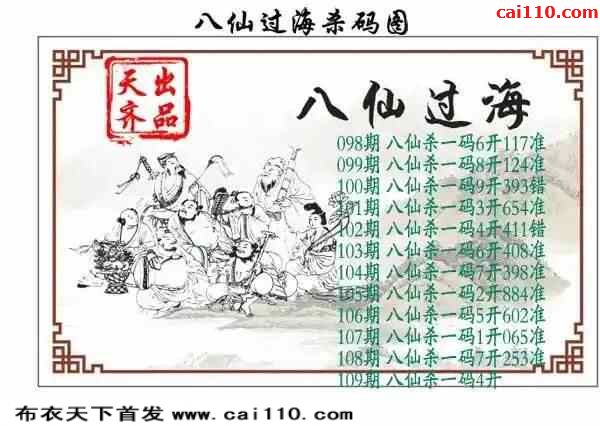 八仙过海杀码图
cai110.com
天齐出品
八仙过海
098期 八仙杀一码6开117准
099期 八仙杀一码8开124准
100期 八仙杀一码9开393错
101期 八仙杀一码3开654准
102期 八仙杀一码4开411错
103期 八仙杀一码6开408准
104期 八仙杀一码7开398准
105期 八仙杀一码2开884准
106期 八仙杀一码5开602准
107期 八仙杀一码1开065准
108期 八仙杀一码7开253准
109期 八仙杀一码4开
布衣天下首发 www.cai110.com